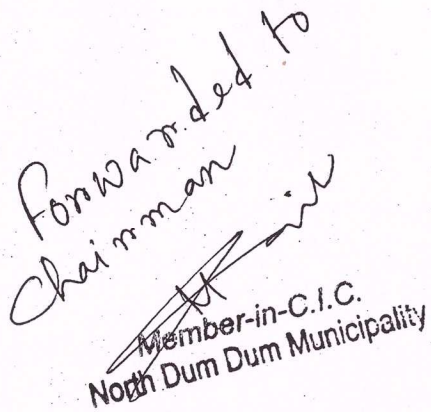 Forwarded to
Chairman
Member-in-C.I.C.
North Dum Dum Municipality